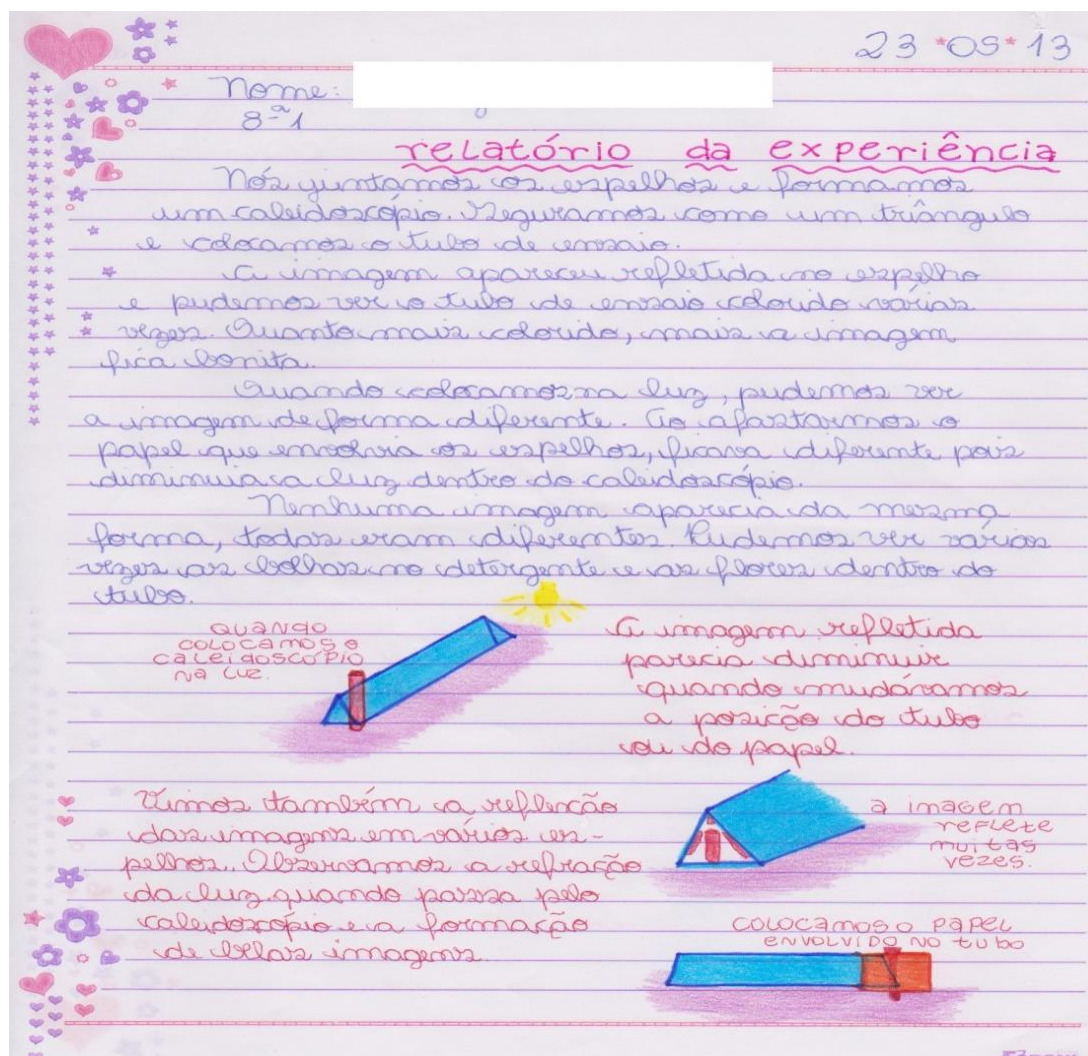 23*09*13
Nome:
8ª1
relatório da experiência
Nós juntamos os espelhos e formamos
um caleidoscópio. Seguramos como um triângulo
e colocamos o tubo de ensaio.
A imagem apareceu refletida no espelho
e pudemos ver o tubo de ensaio colorido várias
vezes. Quanto mais colorido, mais a imagem
fica bonita.
Quando colocamos na luz, pudemos ver
a imagem de forma diferente. Ao afastarmos o
papel que envolvia os espelhos, ficava diferente pois
diminuia a luz dentro do caleidoscópio.
Nenhuma imagem aparecia da mesma
forma, todas eram diferentes. Pudemos ver várias
vezes as bolhas no detergente e as flores dentro do
tubo.
QUANDO
COLOCAMOS O
CALEIDOSCÓPIO
NA LUZ.
A imagem refletida
parecia diminuir
quando mudávamos
a posição do tubo
ou do papel.
Vimos também a reflexão
das imagens em vários es-
pelhos. Observamos a refração
da luz quando passa pelo
caleidoscópio e a formação
de belas imagens
a imagem
reflete
muitas
vezes.
COLOCAMOS O PAPEL
ENVOLVIDO NO tubo